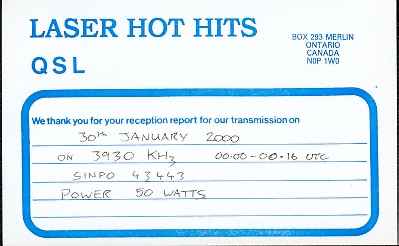 LASER HOT HITS
QSL
BOX 293 MERLIN
ONTARIO
CANADA
N0P 1W0
We thank you for your reception report for our transmission on
30th JANUARY 2000
ON 3930 KHz 00:00-00.16 UTC
SINPO 43443
POWER 50 WATTS